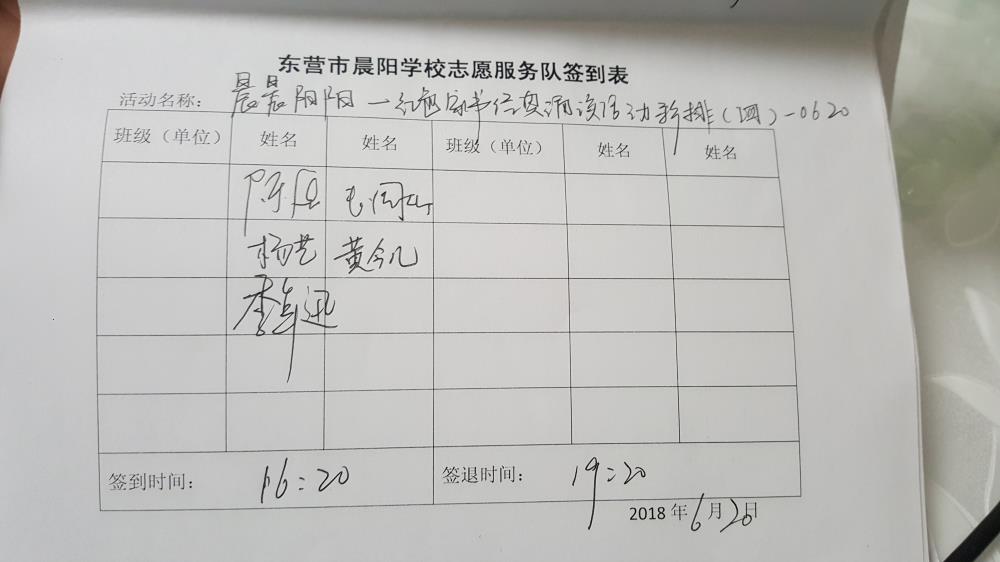 东营市晨阳学校志愿服务队签到表
活动名称：晨晨阳阳一红色家书经典诵读活动彩排（四）-0620
班级（单位） 姓名 姓名 班级（单位） 姓名 姓名
杨艺 黄令几
签到时间：16:20 签退时间：19:20
2018年6月20日